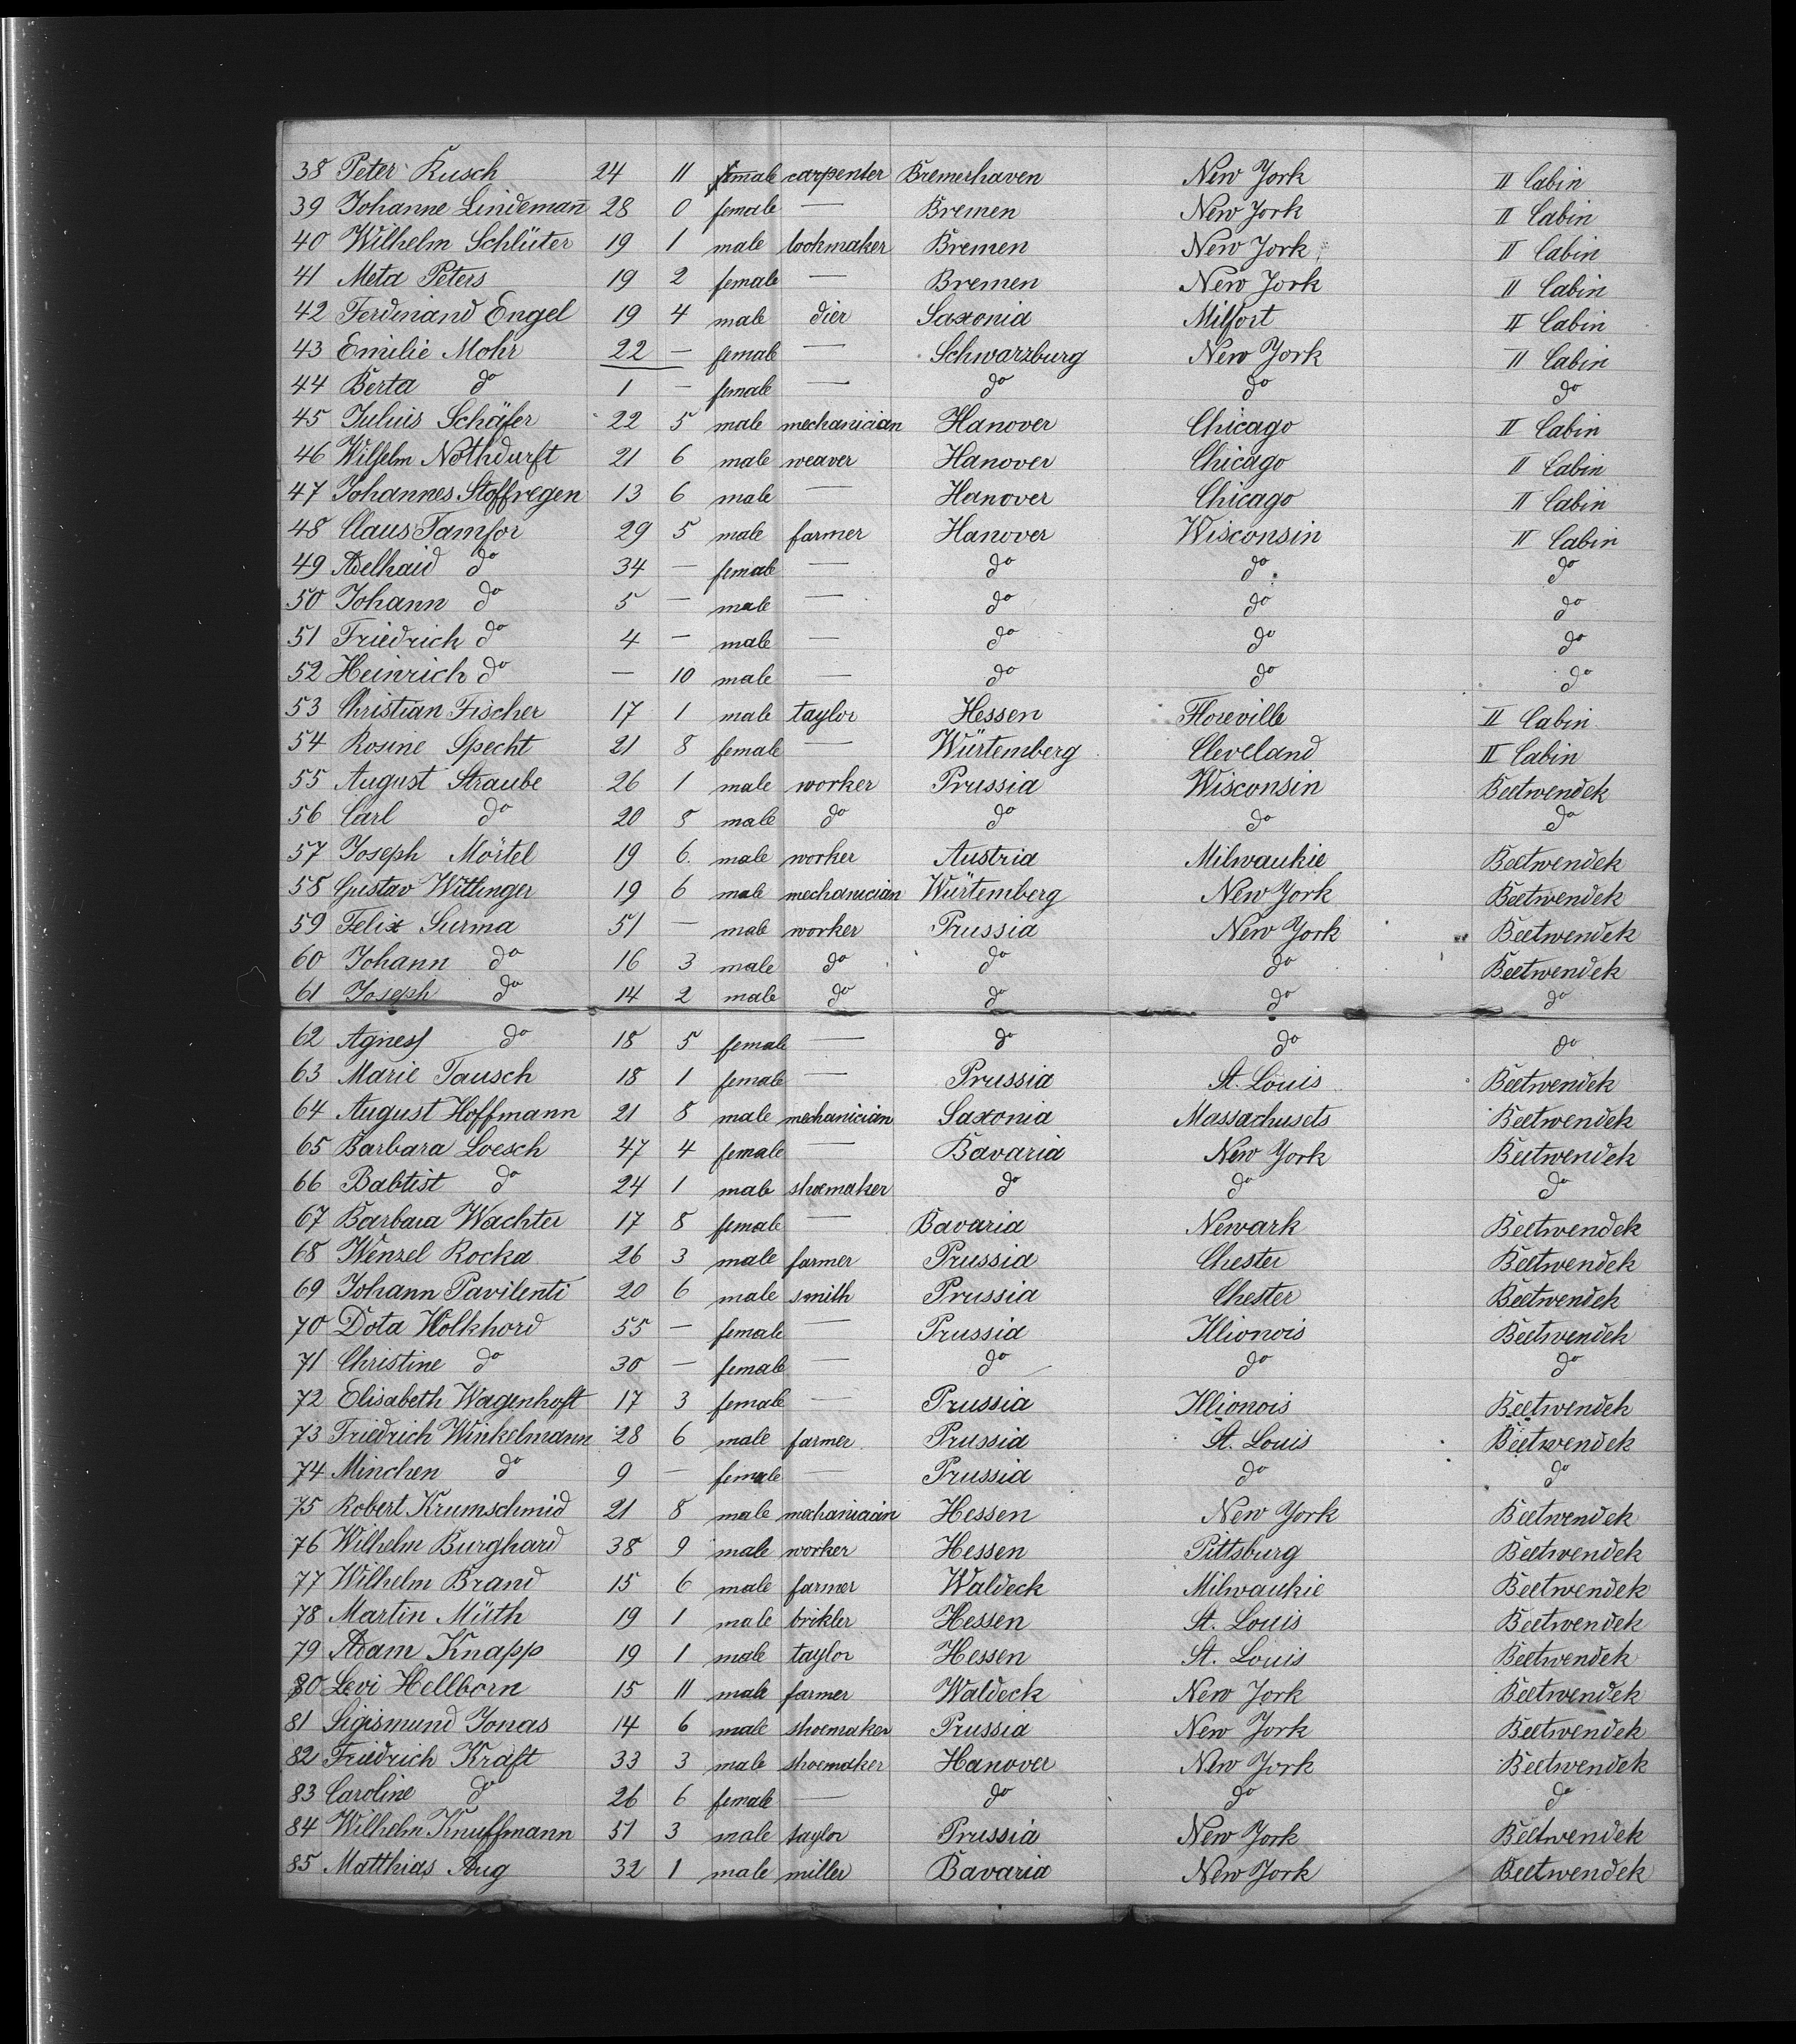 38 Peter Kusch 24 11 male carpenter Bremerhaven New York II Cabin
39 Johanne Lindemañ 28 0 female — Bremen New York II Cabin
40 Wilhelm Schlüter 19 1 male bookmaker Bremen New York II Cabin
41 Meta Peters 19 2 female — Bremen New York II Cabin
42 Ferdinand Engel 19 4 male dier Saxonia Milfort II Cabin
43 Emilie Mohr 22 — female — Schwarzburg New York II Cabin
44 Berta do 1 — female — do do do
45 Juluis Schäfer 22 5 male mechanician Hanover Chicago II Cabin
46 Wilhelm Nothdurft 21 6 male weaver Hanover Chicago II Cabin
47 Johannes Stoffregen 13 6 male — Hanover Chicago II Cabin
48 Claus Tamfor 29 5 male farmer Hanover Wisconsin II Cabin
49 Adelhaid do 34 — female — do do do
50 Johann do 5 — male — do do do
51 Friedrich do 4 — male — do do do
52 Heinrich do — 10 male — do do do
53 Christian Fischer 17 1 male taylor Hessen Floreville II Cabin
54 Rosine Specht 21 8 female — Würtemberg Cleveland II Cabin
55 August Straube 26 1 male worker Prussia Wisconsin Beetwendek
56 Carl do 20 8 male do do do do
57 Joseph Mörtel 19 6 male worker Austria Milwaukie Beetwendek
58 Gustav Wittinger 19 6 male mechanician Würtemberg New York Beetwendek
59 Felix Surma 51 — male worker Prussia New York Beetwendek
60 Johann do 16 3 male do do do Beetwendek
61 Joseph do 14 2 male do do do do
62 Agness do 18 5 female — do do do
63 Marie Tausch 18 1 female — Prussia St. Louis Beetwendek
64 August Hoffmann 21 8 male mechanician Saxonia Massachusets Beetwendek
65 Barbara Loesch 47 4 female — Bavaria New York Beetwendek
66 Babtist do 24 1 male shoemaker do do do
67 Barbara Wachter 17 8 female — Bavaria Newark Beetwendek
68 Wenzel Rocka 26 3 male farmer Prussia Chester Beetwendek
69 Johann Pavilenti 20 6 male smith Prussia Chester Beetwendek
70 Dota Holkhord 55 — female — Prussia Illionois Beetwendek
71 Christine do 30 — female — do do do
72 Elisabeth Wagenhoft 17 3 female — Prussia Illionois Beetwendek
73 Friedrich Winkelmann 28 6 male farmer Prussia St. Louis Beetwendek
74 Minchen do 9 — female — Prussia do do
75 Robert Krumschmid 21 8 male mechanician Hessen New York Beetwendek
76 Wilhelm Burghard 38 9 male worker Hessen Pittsburg Beetwendek
77 Wilhelm Brand 15 6 male farmer Waldeck Milwaukie Beetwendek
78 Martin Müth 19 1 male brikler Hessen St. Louis Beetwendek
79 Adam Knapp 19 1 male taylor Hessen St. Louis Beetwendek
80 Levi Hellborn 15 11 male farmer Waldeck New York Beetwendek
81 Sigismund Jonas 14 6 male shoemaker Prussia New York Beetwendek
82 Friedrich Kraft 33 3 male shoemaker Hanover New York Beetwendek
83 Caroline do 26 6 female — do do do
84 Wilhelm Knuffmann 51 3 male taylor Prussia New York Beetwendek
85 Matthias Aug 32 1 male miller Bavaria New York Beetwendek